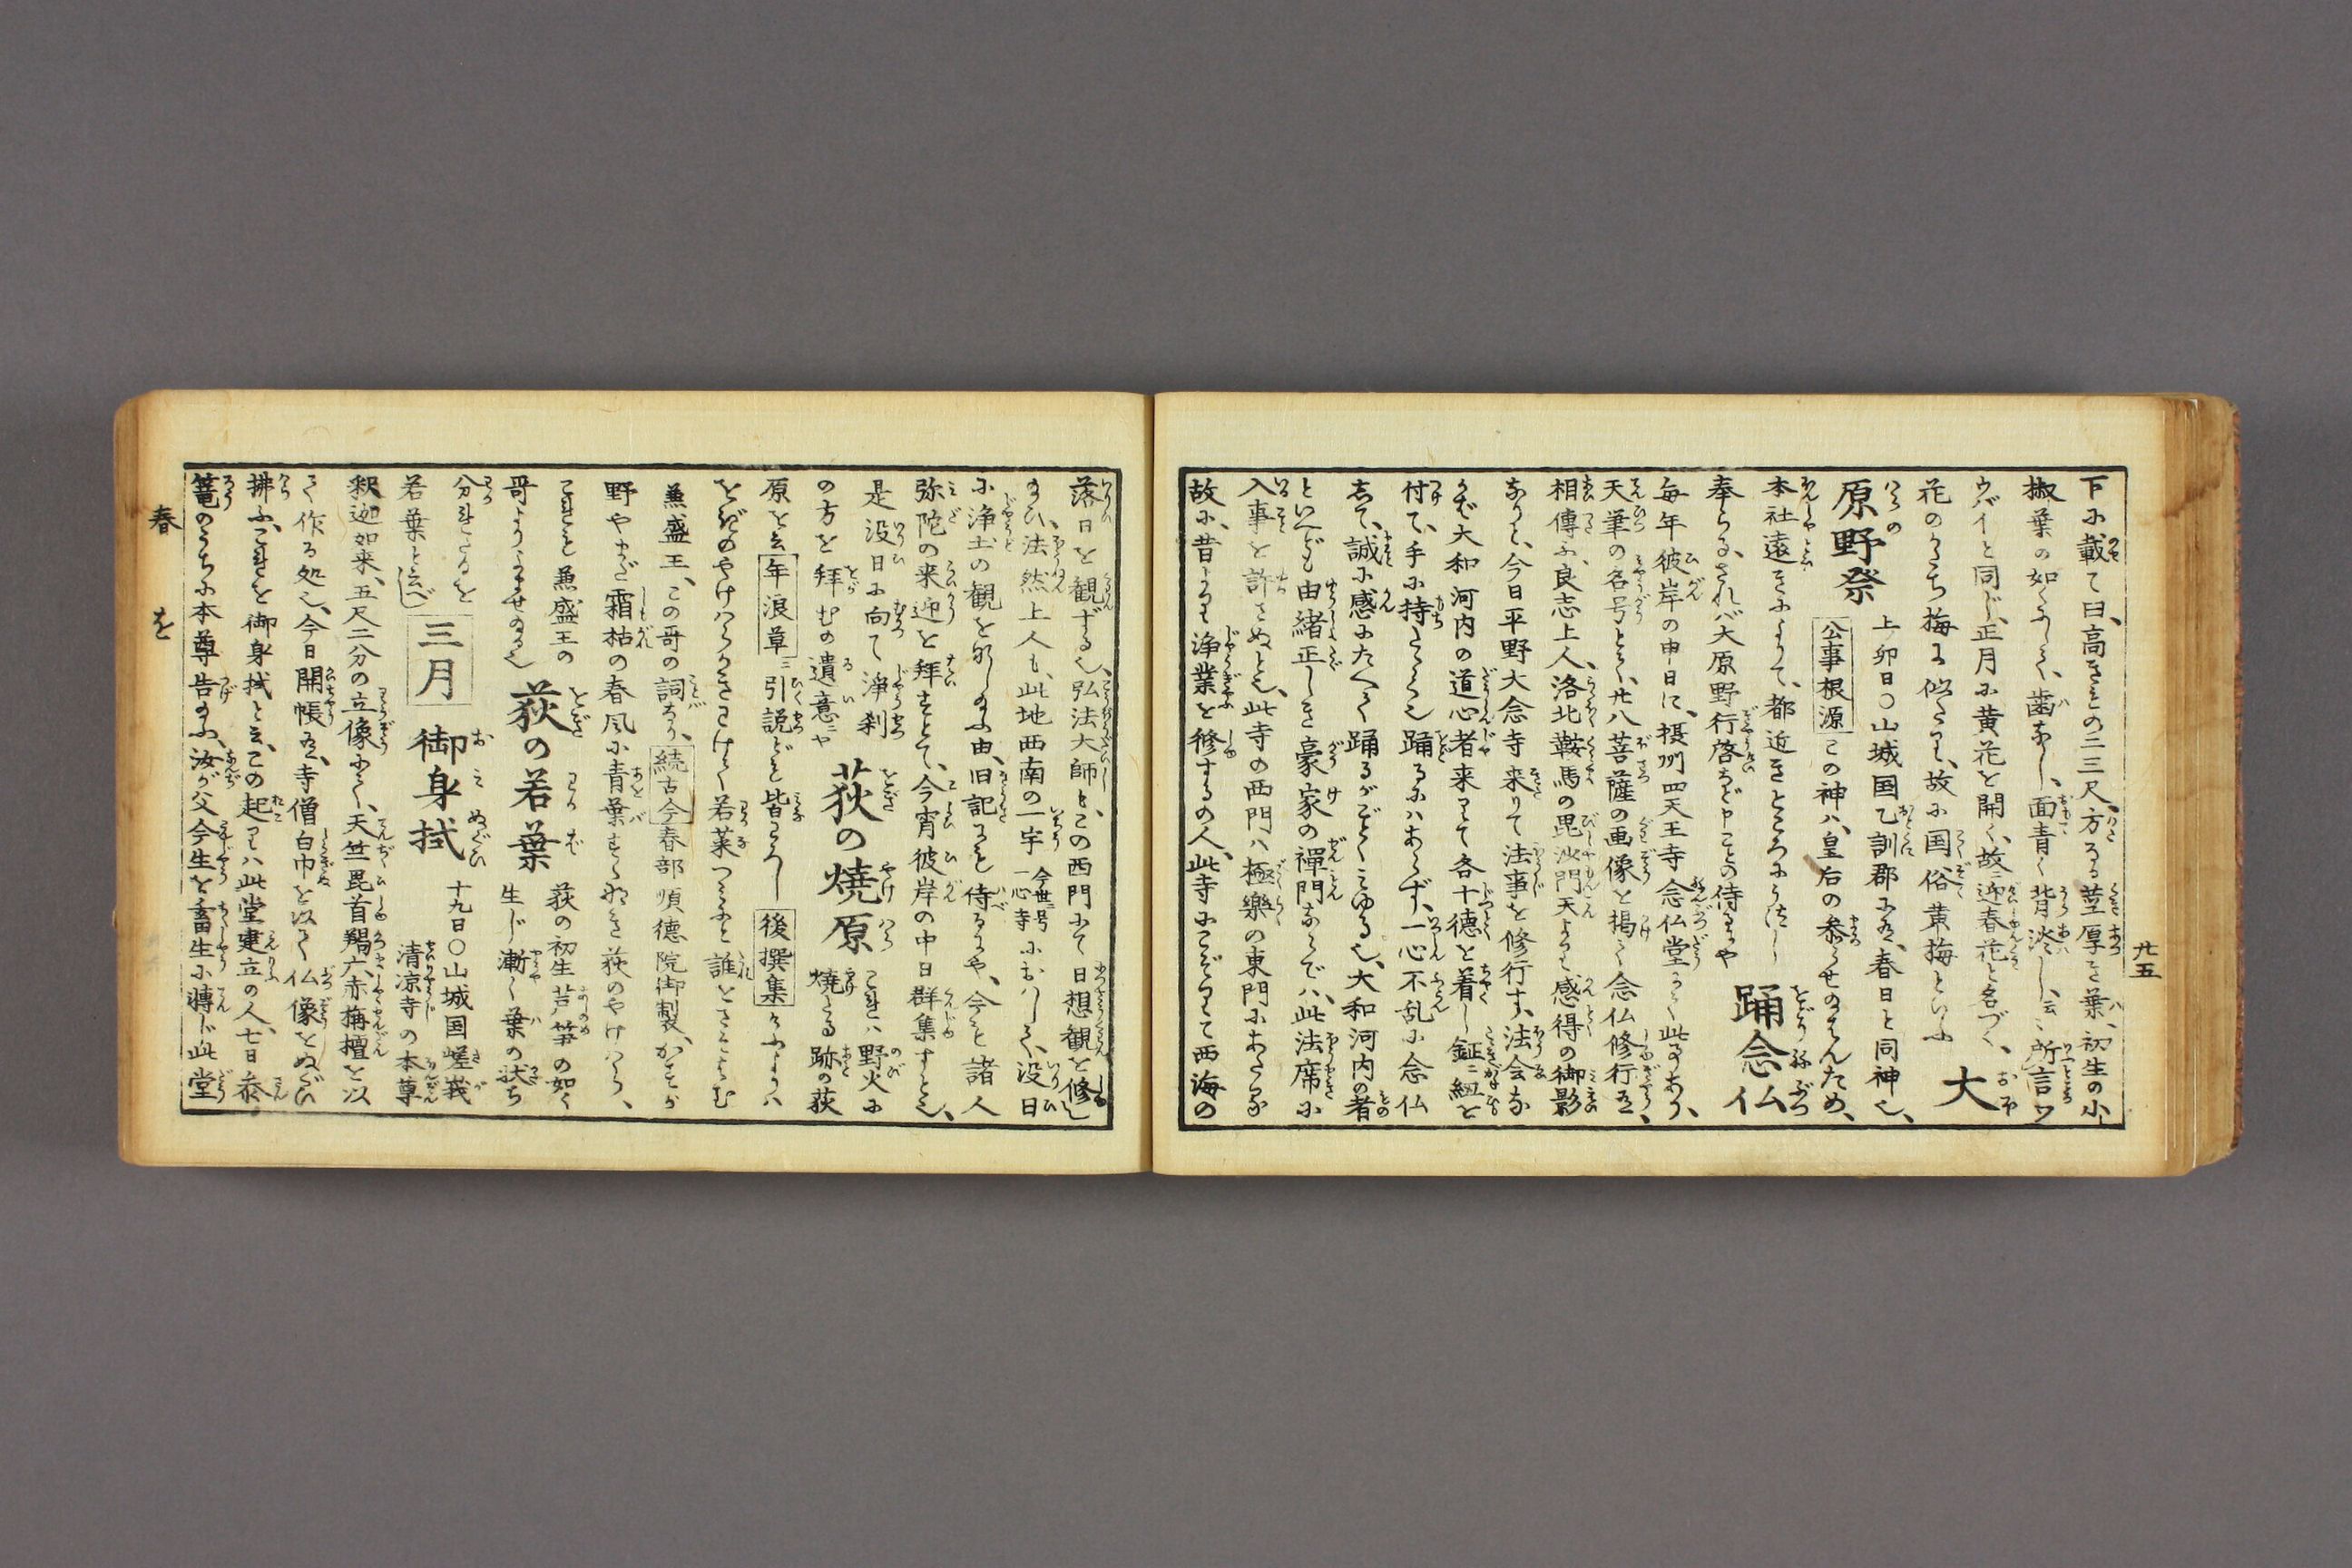 廿五
下に載て曰、高きもの二三尺、方なる茎厚き葉、初生の小
椒葉の如くにして、歯なし、面青く背淡し、云云所言ツ
ウバイと同じ、正月に黄花を開く、故ニ迎春花と名づく、
花のかたち梅に似たり、故に国俗黄梅といふ 大
原野祭 上ノ卯日〇山城国乙訓郡にあり、春日と同神也、
公事根源 この神ハ、皇后の参らせ給はんため、
本社遠きによりて、都近きところにうつし
奉らる、されバ大原野行啓など申ことの侍るにや 踊念仏
毎年彼岸の申ノ日に、摂州四天王寺念仏堂にて此事あり、
天筆の名号とて、廿八菩薩の画像を掲げて念仏修行あり、
相傳ふ、良忠上人、洛北鞍馬の毘沙門天より感得の御影
なりと、今日平野大念寺来りて法事を修行す、法会な
かば大和河内の道心者来りて各十徳を着し鉦ニ紐を
付て、手に持たたく也踊るにハあらず、一心不乱に念仏
して、誠に感にたへて踊るがごとくみゆる也、大和河内の者
といへども由緒正しき豪家の禪門ならでハ、此法席に
入事を許さぬとぞ、此寺の西門ハ極樂の東門にあたる
故に、昔より浄業を修するの人、此寺にこぞりて西海の
落日を観ずる也、弘法大師も、この西門にて日想観を修し
給ひ、法然上人も、此地西南の一宇 今世ニ号一心寺 におハして、没日
に浄土の観をなし給ふ由、旧記にも侍るにや、今も諸人
弥陀の来迎を拝すとて、今宵彼岸の中日群集すと也、
是没日に向て浄刹
の方を拝むの遺意ニや 荻の焼原 これハ野火に
焼たる跡の荻
原を云 年浪草ニ引説ども皆わろし 後撰集かふよりハ
をぎのやけハらかきわけて若菜つみにと誰をさそはむ
兼盛王、この哥の詞なり、続古今春部 順德院御製、かすが
野やまだ霜枯の春風に青葉すくなき荻のやけハら、
これも兼盛王の
哥よりよませ給る也 荻の若葉 荻の初生芦笋の如く
生じ漸く葉の状ち
分れたるを
若葉と云べし 三月 御身拭 十九日〇山城国嵯峩
清凉寺の本尊
釈迦如来、五尺二分の立像にて、天竺毘首羯广、赤栴檀を以
て作る処也、今日開帳あり、寺僧白巾を以て仏像をぬぐひ
拂ふ、これを御身拭と云、この起りハ此堂建立の人、七日参
篭のうちに本尊告給ふ、汝が父今生を畜生に轉じ此堂
春 を